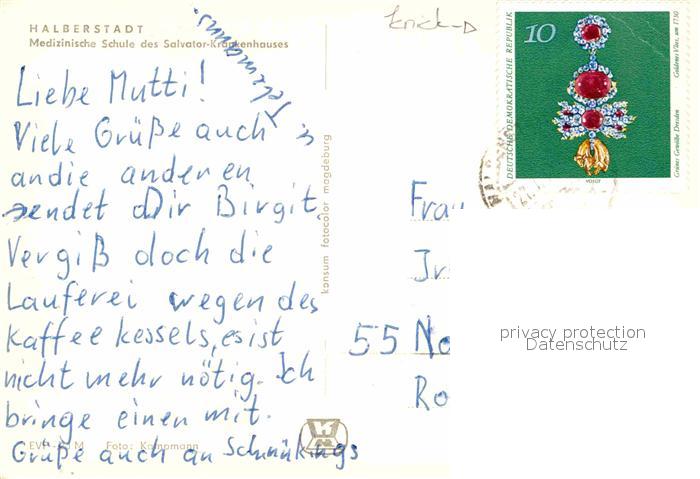 HALBERSTADT
Medizinische Schule des Salvator-Krankenhauses
Liebe Mutti!
Viele Grüße auch
an die anderen
sendet Dir Birgit.
Vergiß doch die
Lauferei wegen des
Kaffeekessels, es ist
nicht mehr nötig. Ich
bringe einen mit.
Grüße auch an Schmükings
EVP M Foto: Kampmann
konsum fotocolor magdeburg
Erich-
10
DEUTSCHE DEMOKRATISCHE REPUBLIK
Goldenes Vlies, um 1730
Grünes Gewölbe Dresden
VOIGT
Frau
Ir
55 No
Ro
privacy protection
Datenschutz